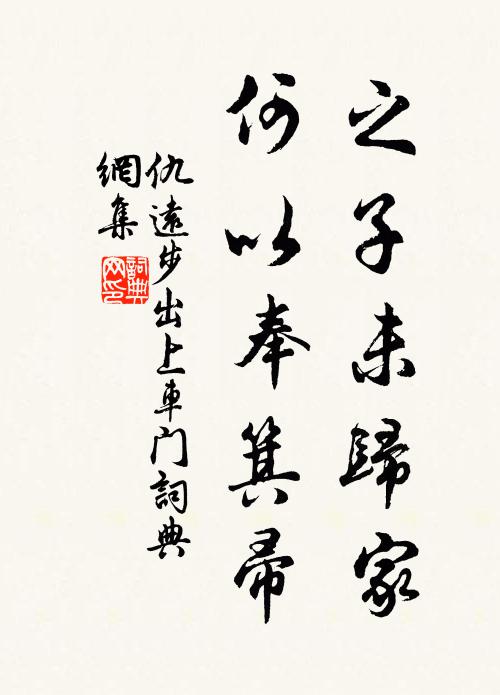 之子未歸家
何以奉箕帚
仇遠步出上車門詞典
網集
詞典網印